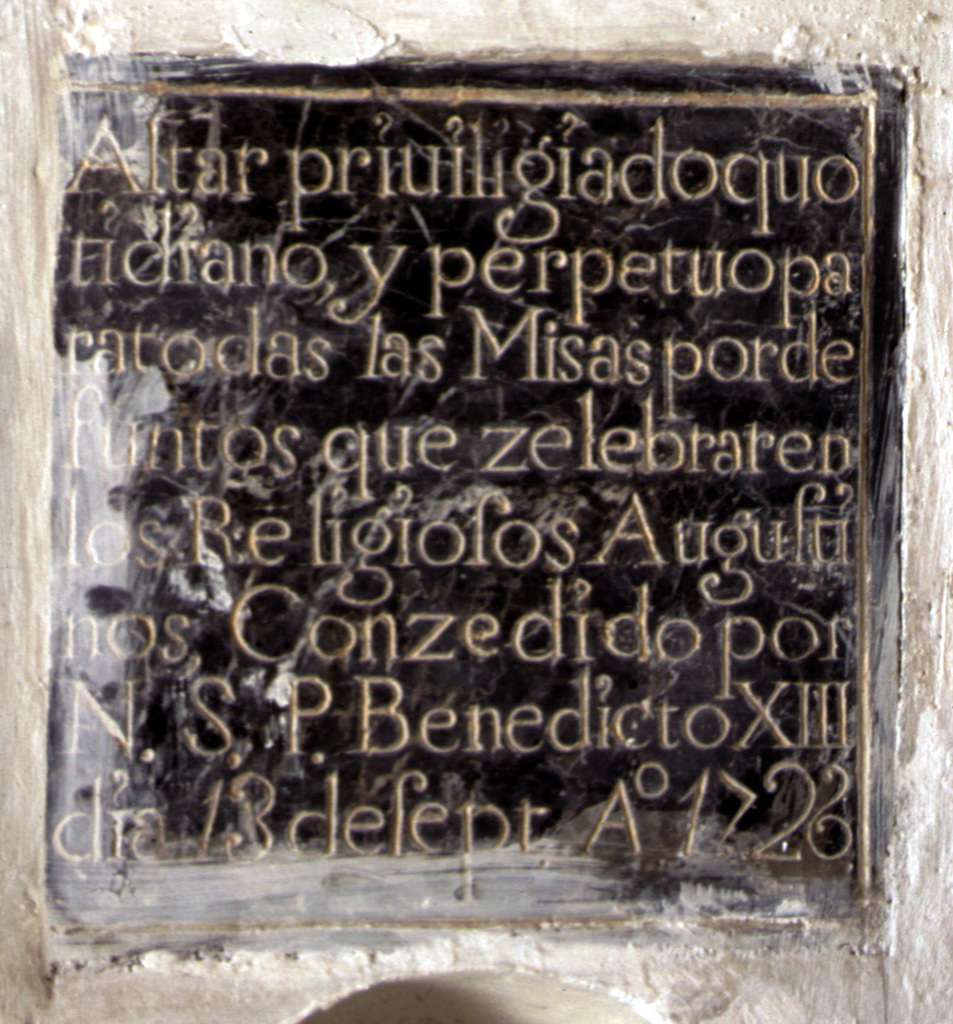 Altar priuiligiadoquo
tidiano, y perpetuopa
ratodas las Misas porde
funtos que zelebraren
los Religiosos Augusti
nos. Conzedido por
N. S. P. Benedicto XIII
dia 13 desept Aº 1726